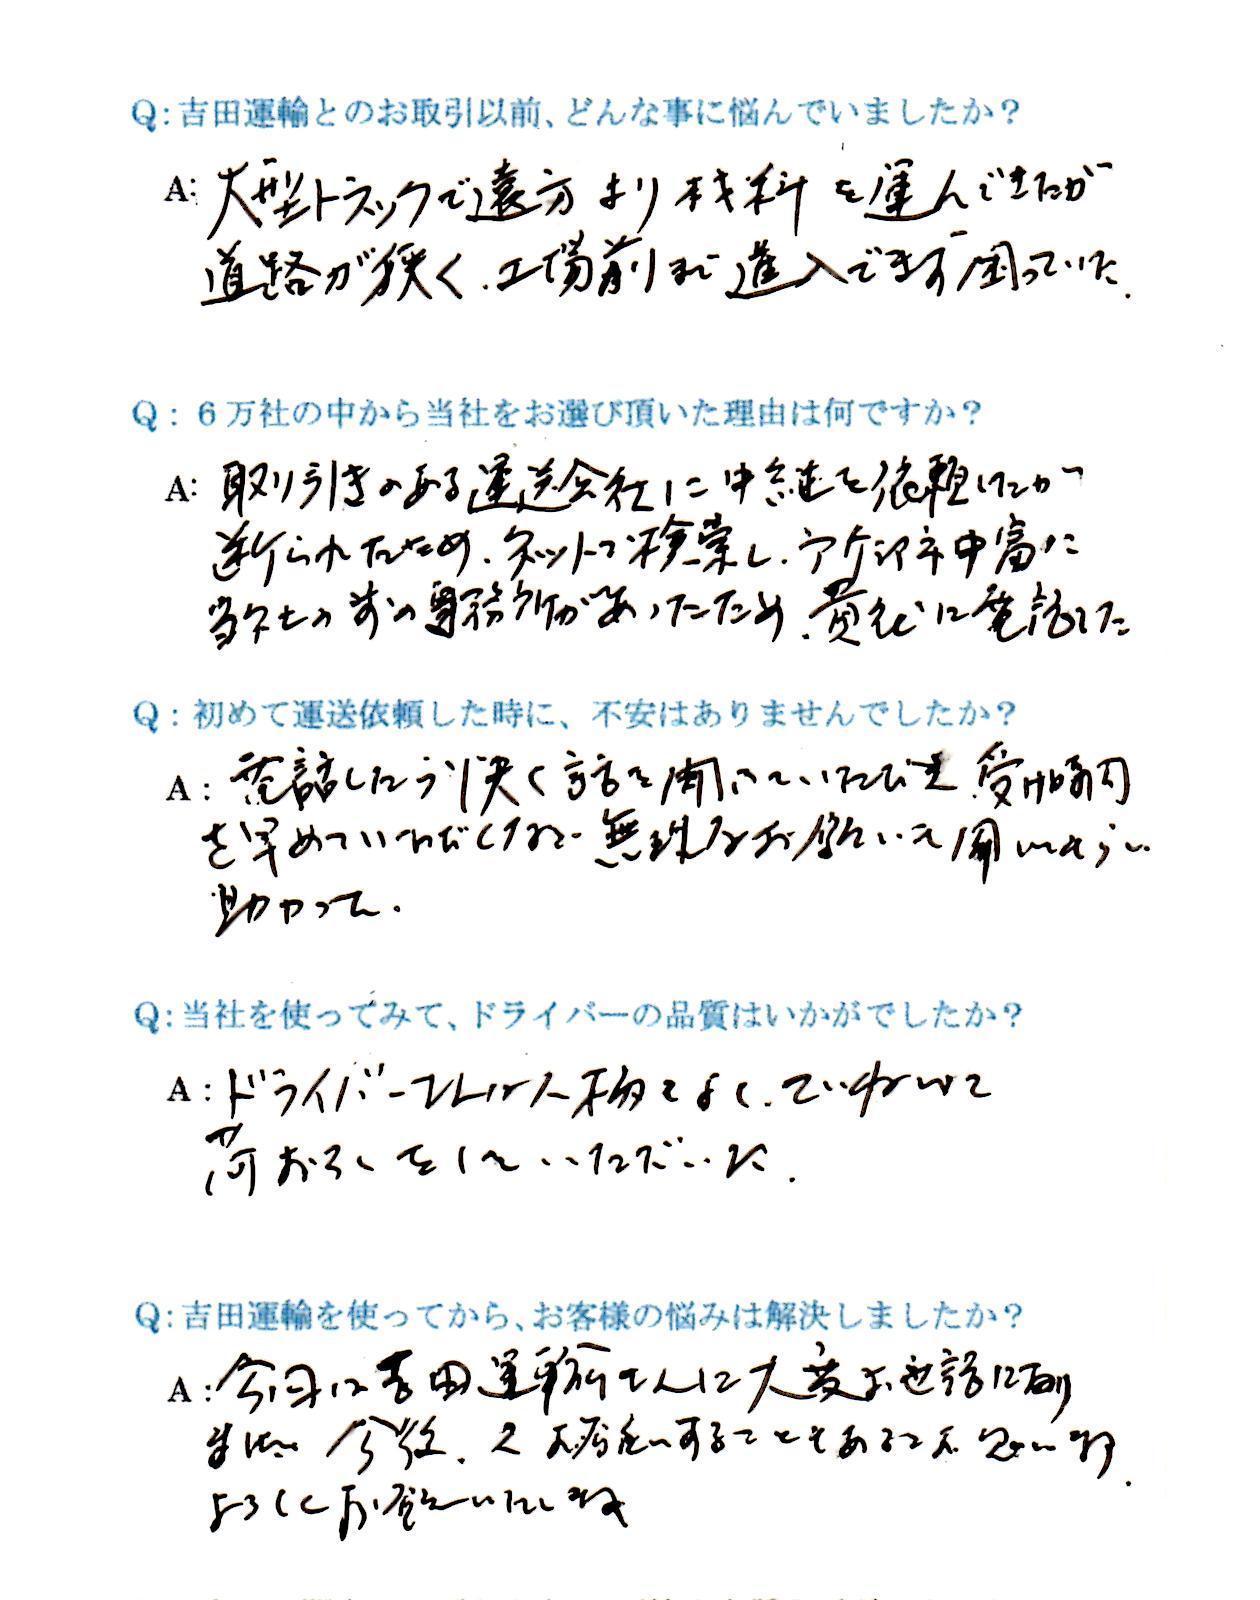 Q:吉田運輸とのお取引以前、どんな事に悩んでいましたか?
A:大型トラックで遠方より材料を運んできたが
道路が狭く、工場前まで進入できず困っていた.
Q:6万社の中から当社をお選び頂いた理由は何ですか?
A:取り引きのある運送会社に中継を依頼したが
断られたため、ネットで検索し、所沢市中富に
当社の前の事務所があったため、貴社に電話した
Q:初めて運送依頼した時に、不安はありませんでしたか?
A:電話したら快く話を聞いていただき 受け時間
を早めていただくなど無理なお願いも聞いてもらい
助かった.
Q:当社を使ってみて、ドライバーの品質はいかがでしたか?
A:ドライバーさんは人柄もよく、ていねいに
荷おろしをしていただいた.
Q:吉田運輸を使ってから、お客様の悩みは解決しましたか?
A:今回は吉田運輸さんに大変お世話になり
ました 今後、又お願いすることもあると思います.
よろしくお願いいたします